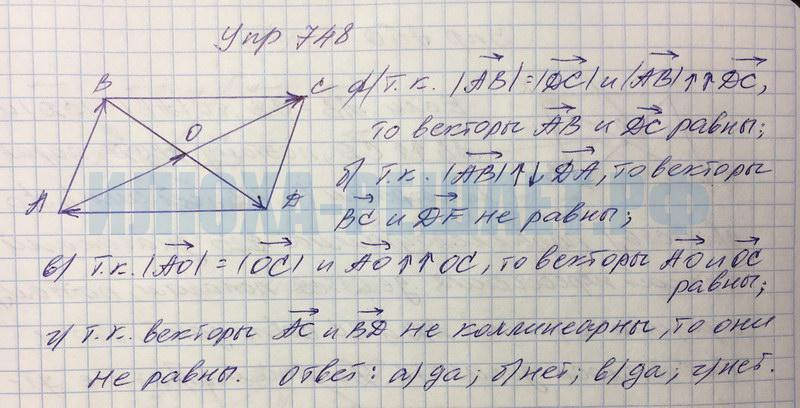 Упр 748
B C
O
A D
а) т.к. |AB| = |DC| и |AB| ↑↑ DC,
то векторы AB и DC равны;
б) т.к. |AB| ↑↓ DA, то векторы
BC и DF не равны;
в) т.к. |AO| = |OC| и AO ↑↑ OC, то векторы AO и OC
равны;
г) т.к. векторы AC и BD не коллинеарны, то они
не равны. Ответ: а) да; б) нет; в) да; г) нет.